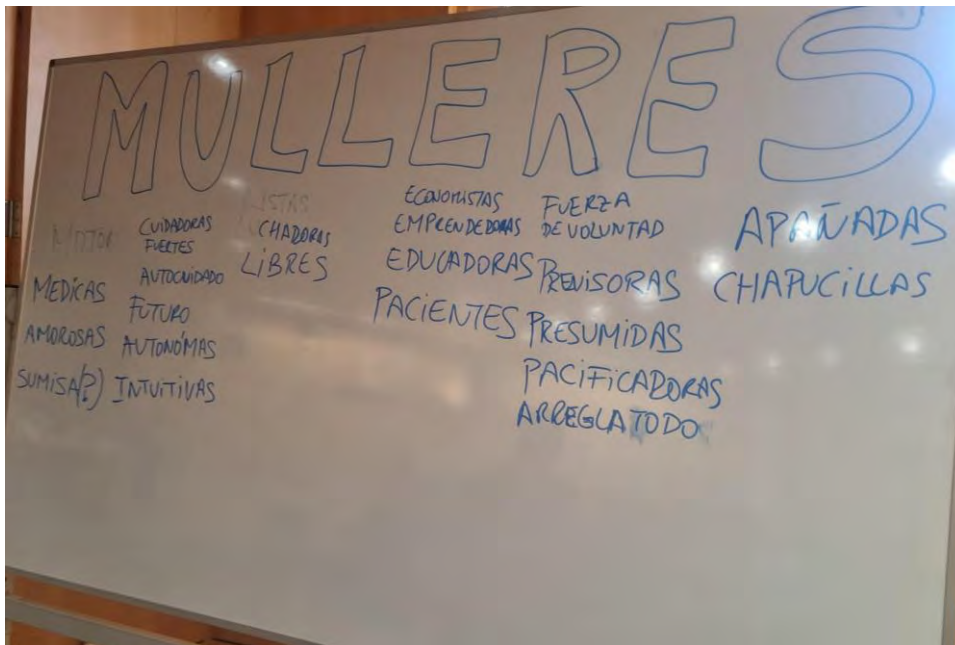 MULLERES
MOTOR
MEDICAS
AMOROSAS
SUMISA(?)
CUIDADORAS
FUERTES
AUTOCUIDADO
FUTURO
AUTONÓMAS
INTUITIVAS
LISTAS
CHADORAS
LIBRES
ECONOMISTAS
EMPRENDEDORAS
EDUCADORAS
PACIENTES
FUERZA
DE VOLUNTAD
PREVISORAS
PRESUMIDAS
PACIFICADORAS
ARREGLATODO
APAÑADAS
CHAPUCILLAS